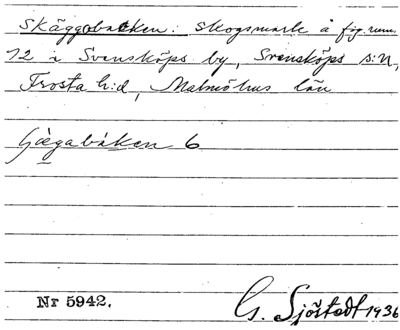 Skäggobacken: Skogsmark å fig. num.
12 i Svensköps by, Svensköps s:n,
Frosta h:d, Malmöhus län
6
Nr 5942.
G. Sjöstedt 1936